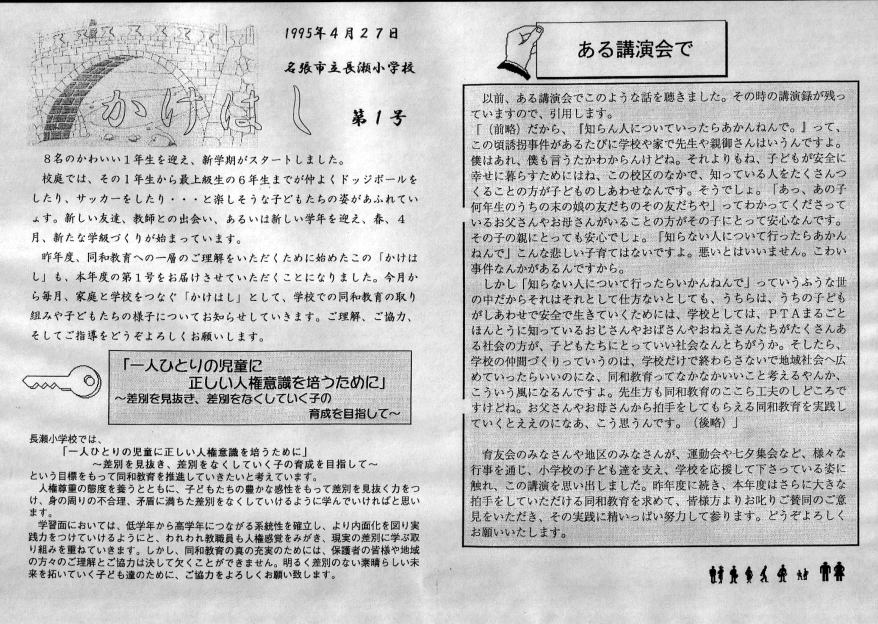 かけはし
1995年4月27日
名張市立長瀬小学校
第1号
8名のかわいい1年生を迎え、新学期がスタートしました。
校庭では、その1年生から最上級生の6年生までが仲よくドッジボールを
したり、サッカーをしたり・・・と楽しそうな子どもたちの姿があふれてい
ょす。新しい友達、教師との出会い、あるいは新しい学年を迎え、春、4
月、新たな学級づくりが始まっています。
昨年度、同和教育への一層のご理解をいただくために始めたこの「かけは
し」も、本年度の第1号をお届けさせていただくことになりました。今月か
ら毎月、家庭と学校をつなぐ「かけはし」として、学校での同和教育の取り
組みや子どもたちの様子についてお知らせしていきます。ご理解、ご協力、
そしてご指導をどうぞよろしくお願いします。
「一人ひとりの児童に
正しい人権意識を培うために」
～差別を見抜き、差別をなくしていく子の
育成を目指して～
長瀬小学校では、
「一人ひとりの児童に正しい人権意識を培うために」
～差別を見抜き、差別をなくしていく子の育成を目指して～
という目標をもって同和教育を推進していきたいと考えています。
人権尊重の態度を養うとともに、子どもたちの豊かな感性をもって差別を見抜く力をつ
け、身の周りの不合理、矛盾に満ちた差別をなくしていけるように学んでいければと思い
ます。
学習面においては、低学年から高学年につながる系統性を確立し、より内面化を図り実
践力をつけていけるようにと、われわれ教職員も人権感覚をみがき、現実の差別に学ぶ取
り組みを重ねていきます。しかし、同和教育の真の充実のためには、保護者の皆様や地域
の方々のご理解とご協力は決して欠くことができません。明るく差別のない素晴らしい未
来を拓いていく子ども達のために、ご協力をよろしくお願い致します。
ある講演会で
以前、ある講演会でこのような話を聴きました。その時の講演録が残っ
ていますので、引用します。
「（前略）だから、『知らん人についていったらあかんねんで。』って、
この頃誘拐事件があるたびに学校や家で先生や親御さんはいうんですよ。
僕はあれ、僕も言うたかわからんけどね。それよりもね、子どもが安全に
幸せに暮らすためにはね、この校区のなかで、知っている人をたくさんつ
くることの方が子どものしあわせなんです。そうでしょ。「あっ、あの子
何年生のうちの末の娘の友だちのその友だちや」ってわかってくださって
いるお父さんやお母さんがいることの方がその子にとって安心なんです。
その子の親にとっても安心でしょ。「知らない人について行ったらあかん
ねんで」こんな悲しい子育てはないですよ。悪いとはいいません。こわい
事件なんかがあるんですから。
しかし「知らない人について行ったらいかんねんで」っていうふうな世
の中だからそれはそれとして仕方ないとしても、うちらは、うちの子ども
がしあわせで安全で生きていくためには、学校としては、PTAまるごと
ほんとうに知っているおじさんやおばさんやおねえさんたちがたくさんあ
る社会の方が、子どもたちにとっていい社会なんとちがうか。そしたら、
学校の仲間づくりっていうのは、学校だけで終わらさないで地域社会へ広
めていったらいいのにな、同和教育ってなかなかいいこと考えるやんか、
こういう風になるんですよ。先生方も同和教育のここら工夫のしどころで
すけどね。お父さんやお母さんから拍手をしてもらえる同和教育を実践し
ていくとええのになあ、こう思うんです。（後略）」
育友会のみなさんや地区のみなさんが、運動会や七夕集会など、様々な
行事を通じ、小学校の子ども達を支え、学校を応援して下さっている姿に
触れ、この講演を思い出しました。昨年度に続き、本年度はさらに大きな
拍手をしていただける同和教育を求めて、皆様方よりお叱りご賛同のご意
見をいただき、その実践に精いっぱい努力して参ります。どうぞよろしく
お願いいたします。